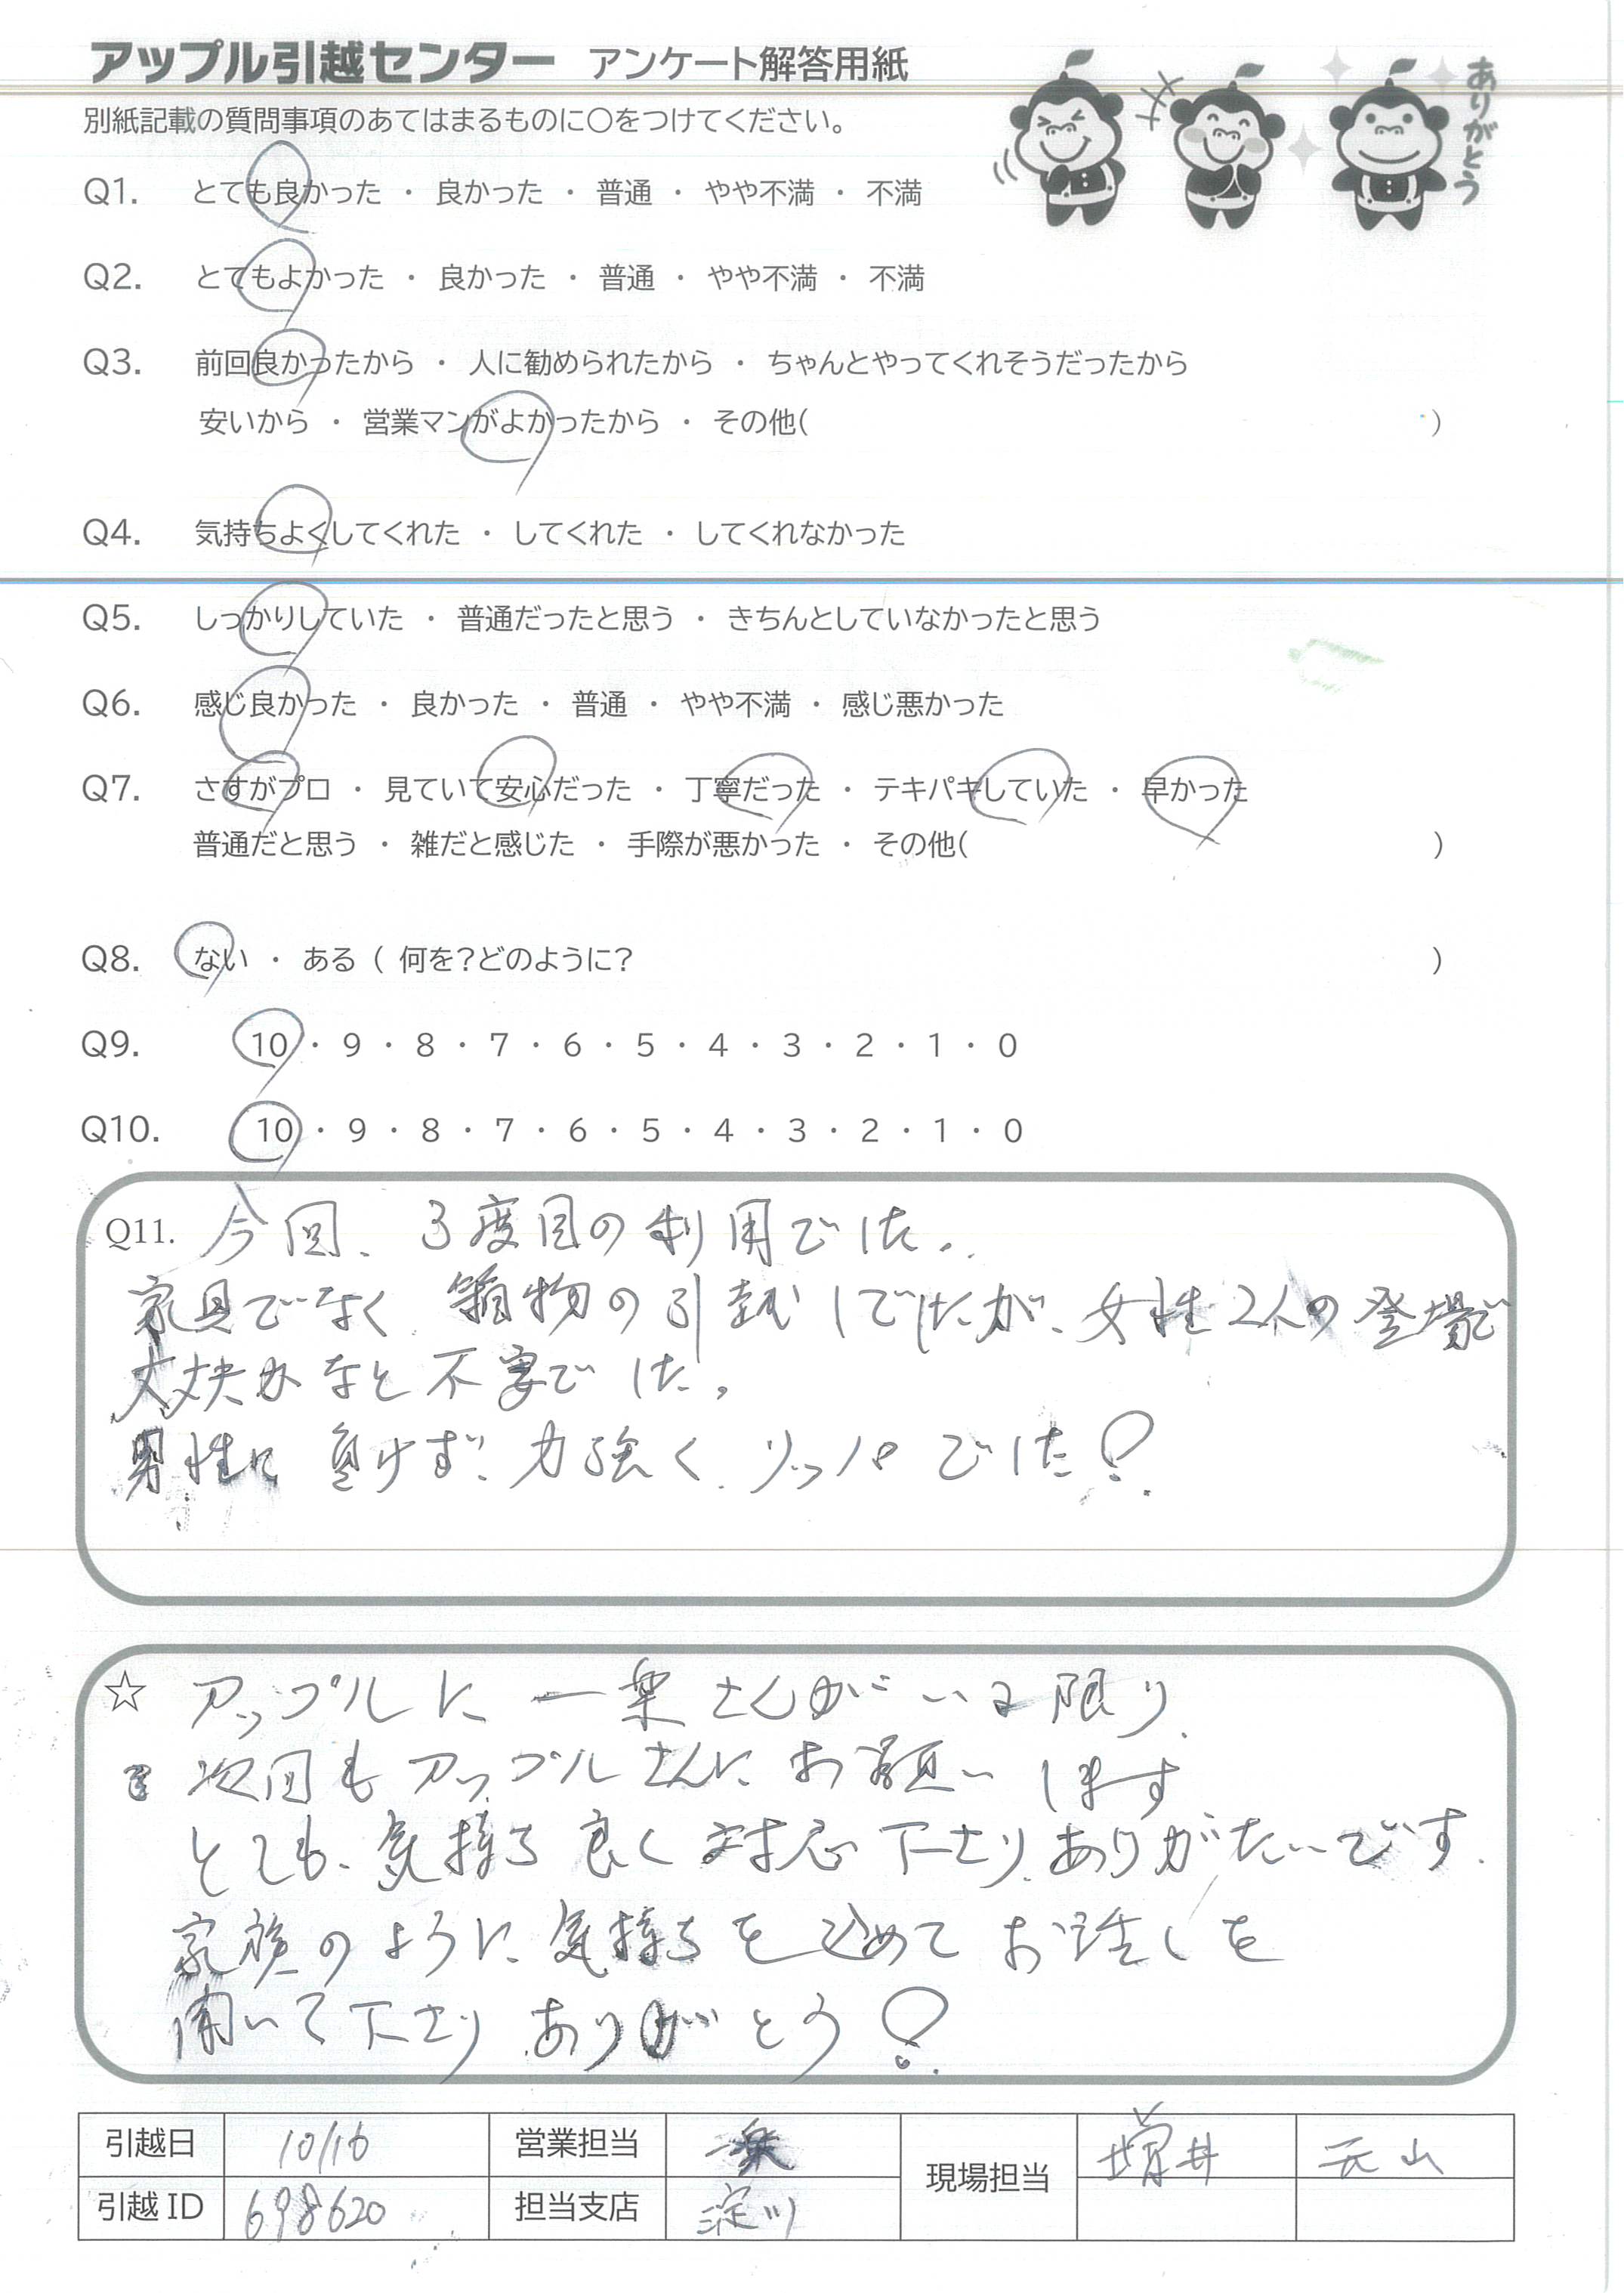 アップル引越センター アンケート解答用紙
別紙記載の質問事項のあてはまるものに○をつけてください。
ありがとう
Q1. とても良かった ・ 良かった ・ 普通 ・ やや不満 ・ 不満
Q2. とてもよかった ・ 良かった ・ 普通 ・ やや不満 ・ 不満
Q3. 前回良かったから ・ 人に勧められたから ・ ちゃんとやってくれそうだったから
安いから ・ 営業マンがよかったから ・ その他( )
Q4. 気持ちよくしてくれた ・ してくれた ・ してくれなかった
Q5. しっかりしていた ・ 普通だったと思う ・ きちんとしていなかったと思う
Q6. 感じ良かった ・ 良かった ・ 普通 ・ やや不満 ・ 感じ悪かった
Q7. さすがプロ ・ 見ていて安心だった ・ 丁寧だった ・ テキパキしていた ・ 早かった
普通だと思う ・ 雑だと感じた ・ 手際が悪かった ・ その他( )
Q8. ない ・ ある ( 何を?どのように? )
Q9. 10 ・ 9 ・ 8 ・ 7 ・ 6 ・ 5 ・ 4 ・ 3 ・ 2 ・ 1 ・ 0
Q10. 10 ・ 9 ・ 8 ・ 7 ・ 6 ・ 5 ・ 4 ・ 3 ・ 2 ・ 1 ・ 0
Q11. 今回、3度目の利用でした。
家具でなく 箱物の引越しでしたが、女性2人の登場で
大丈夫かなと不安でした。
男性に負けず、力強く、リッパでした!
☆ アップルに一楽さんがいる限り、
次回もアップルさんにお願いします
とても、気持ち良く対応下さり、ありがたいです。
家族のように気持ちを込めてお話しを
聞いて下さり ありがとう!
引越日 10/16 営業担当 一楽 現場担当 増井 元山
引越ID 698620 担当支店 淀川